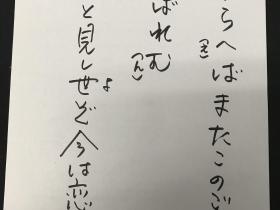 らへばまたこのご
(え)
ばれむ
(ん)
と見し世ぞ今は恋
よ